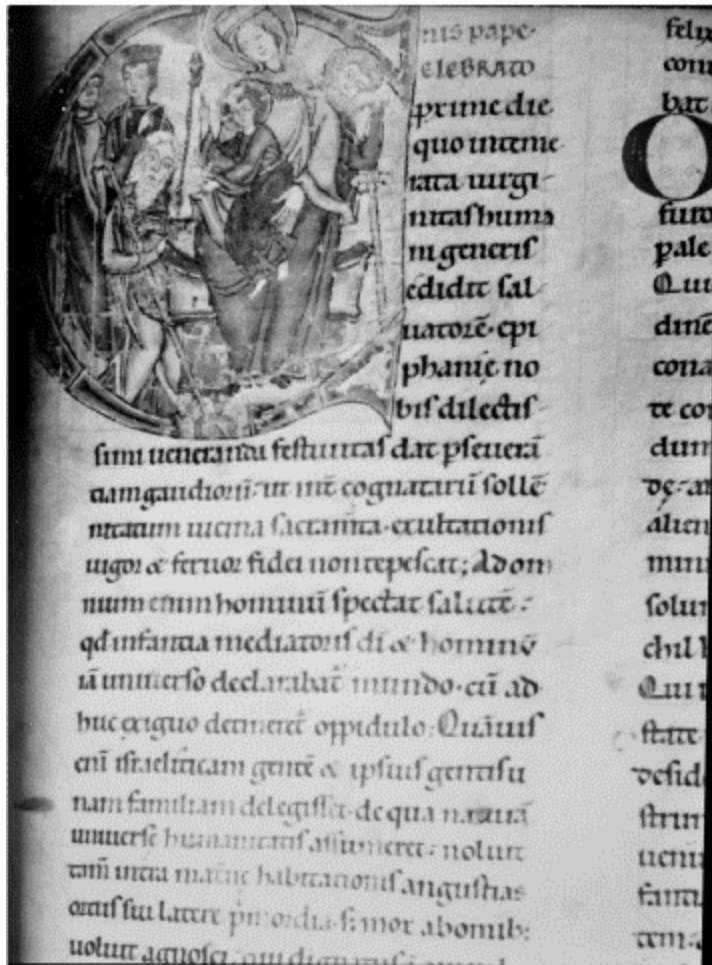 nis pape·
ELEBRATO
prime die
quo inteme
rata uirgi
nitas huma
ni generis
edidit sal
uatorē· epi
phanię no
bis dilectis
simi ueneranda festiuitas dat pseuerā
tiam gaudiorū· ut int̄ cognatarū sollē
nitatum uicina sacram̄ta· exultationis
uigor & feruor fidei non tepescat; Ad om
nium enim hominū spectat salutē·
qd̄ infantia mediatoris di & hominū
iā uniuerso declarabat̄ mundo· cū ad
huc exiguo detineret̄ oppidulo· Quāuis
eni israeliticam gentē & ipsius gentis u
nam familiam delegisset· de qua naturā
uniuersę humanitatis assumeret· noluit
tam̄ intra maternę habitationis angustias
ortus sui latere pmordia· s; mox ab omib;
uoluit agnosci·
felix
bat
futu
pale
Qui
dinē
cona
te con
dum
de· at
alien
mun
solum
chil
Qui
state
desid
strum
ueni
fanti
tem·